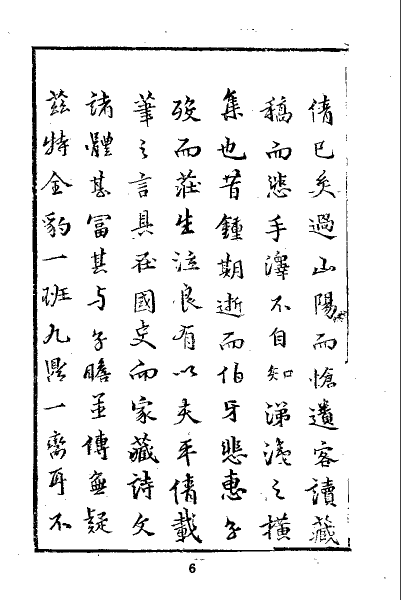 倩已矣過山陽而愴遺客讀藏
稿而悲手澤不自知涕洟之橫
集也昔鍾期逝而伯牙悲惠子
歿而莊生泣良有以夫平倩載
筆之言具在國史而家藏詩文
諸體甚富其與子瞻並傳無疑
茲特全豹一班九鼎一臠耳不
6